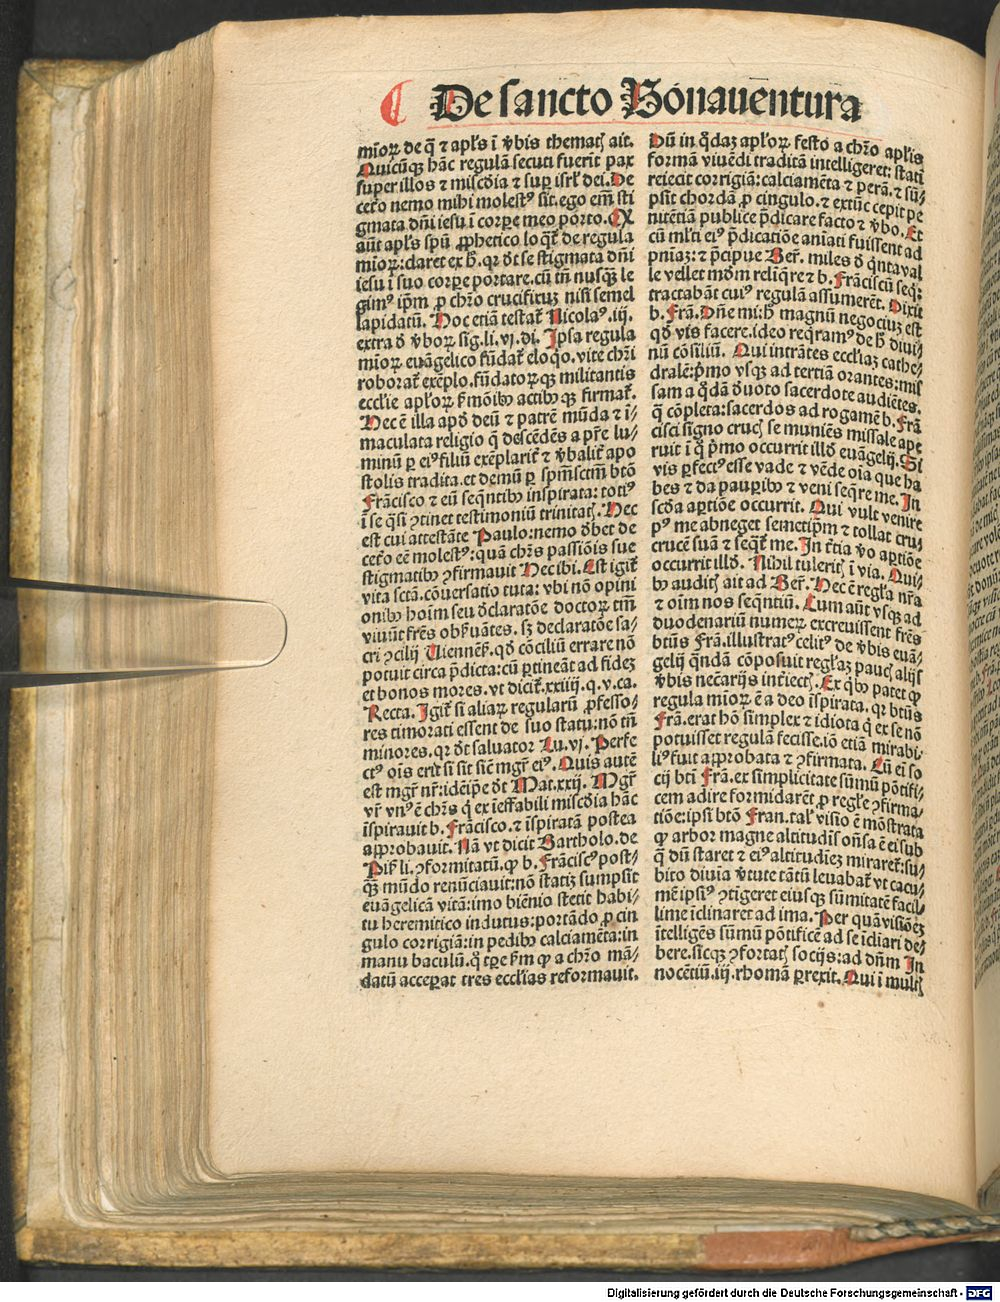 De sancto Bonauētura
mīoꝝ de q̄ ⁊ apl's ī v̓bis thematꝭ ait.
Quicūqꝫ hāc regulā secuti fuerīt pax
super illos ⁊ mīscd̓ia ⁊ sup̲ isrl̓ dei. De
cet̓o nemo mihi molestꝰ sit. ego em̄ sti
gmata dn̄i iesu ī corp̲e meo porto. Ex
aūt apl's spū ꝓphetico loq̄t̓ de regula
mīoꝝ: claret ex h̓. qꝛ d̓t se stigmata dn̄i
iesu ī suo corp̲e portare. cū tn̄ nusqꝫ le
gim̓ꝰ ip̄m ꝓ chr̄o crucifixuꝫ nisi semel
lapidatū. Hoc etiā testat̓ Nicolaꝰ. iij.
extra d̓ v̓boꝝ sig. li. vj. di. Ipsa regula
mīoꝝ euāgelico fūdat̓ eloqͦ. vite chr̄i
roborat̓ exēplo. fūdatoꝝqꝫ militantis
eccl̓ie apl̓oꝝ f̓mōibꝰ actibꝰqꝫ firmat̓.
Hec ē illa apd̓ deū ⁊ patrē mūda ⁊ ī-
maculata religio q̄ descēdēs a pr̄e lu/
minū p̲ eiꝰ filiū exēplarit̓ ⁊ v̓balit̓ apo
stolis tradita. et demū p̲ spm̄sctm̄ btō
Frācisco ⁊ eū seq̄ntibꝰ inspirata: totiꝰ
ī se q̄si ꝯtinet testimoniū trinitatꝭ. Hec
est cui attestāte Paulo: nemo d̓bet de
cet̓o eē molestꝰ: quā chr̄s passiōis sue
stigmatibꝰ ꝯfirmauit Hec ibi. Est igit̓
vita sctā. cōuersatio tuta: vbi nō opini
onibꝰ hoīm seu d̓claratōe doctoꝝ tm̄
viuūt fr̄es obs̓uātes. sꝫ declaratōe sa/
cri ꝯcilij Uiennēs̓. qd̓ cōciliū errare nō
potuit circa p̄dicta: cū p̲tineāt ad fideꝫ
et bonos mores. vt dicit̓. xxiiij. q. v. ca.
Recta. Igit̓ si aliaꝝ regularū ꝓfesso/
res timorati essent de suo statu: nō tn̄
minores. qꝛ d̓t saluator Lu. vj. Perfe
ctꝰ oīs erit si sit sic̄ mgr̄ eiꝰ. Quis autē
est mgr̄ nr̄: idēip̄e d̓t Mat. xxij. Mgr̄
vr̄ vnꝰ ē chr̄s q̇ ex īeffabili mīscd̓ia hāc
īspirauit b. Frācisco. ⁊ īspiratā postea
approbauit. Nā vt dicit Bartholo. de
Pis̓. li. ꝯformitatū. ꝙ b. Frāciscꝰ post-
qꝫ mūdo renūciauit: nō statiꝫ sumpsit
euāgelicā vitā: imo biēnio stetit habi/
tu heremitico indutus: portādo ꝓ cin
gulo corrigiā: in pedibꝰ calciamēta: in
manu baculū. q̇ tp̲e s̓m ꝙ a chr̄o mā/
datū accep̲at tres eccl̓ias reformauit.
Dū in q̓daꝫ apl̓oꝝ festo a chr̄o apl̓is
formā viuēdi traditā intelligeret: stati
reiecit corrigiā: calciamēta ⁊ perā. ⁊ sū/
psit chordā ꝓ cingulo. ⁊ extūc cepit pe
nitētiā publice p̄dicare facto ⁊ v̓bo. Et
cū ml̓ti eiꝰ p̄dicatiōe aniati fuissent ad
pniāꝫ: ⁊ p̄cipue Ber̄. miles d̓ q̄ntaual
le vellet mōm relīq̄re ⁊ b. Frāciscū seq̇:
tractabāt cuiꝰ regulā assumerēt. Dixit
b. Frā. Dn̄e mi: h̓ magnū negociuꝫ est
qd̓ vis facere. ideo req̇ramꝰ de h̓ diui/
nū cōsiliū. Qui intrātes eccl̓iaꝫ cathe/
dralē: p̓mo vsqꝫ ad tertiā orantes: mis
sam a q̓dā d̓uoto sacerdote audiētes.
q̄ cōpleta: sacerdos ad rogamē b. Frā
cisci signo crucꝭ se muniēs missale ape
ruit ī q̓ p̓mo occurrit illd̓ euāgelij. Si
vis p̲fectꝰ esse vade ⁊ vēde oīa que ha
bes ⁊ da paup̲ibꝰ ⁊ veni seq̄re me. In
scd̓a ap̲tiōe occurrit. Qui vult venire
pꝰ me abneget semetip̄m ⁊ tollat cru/
crucē suā ⁊ seq̄t̓ me. In t̓tia v̓o ap̲tiōe
occurrit illd̓. Nihil tuleritꝭ ī via. Qui/
bꝰ auditꝭ ait ad Ber̄. Hec ē regl̓a nr̄a
⁊ oīm nos seq̄ntiū. Cum aūt vsqꝫ ad
duodenariū numeꝝ excreuissent fr̄es
btūs Frā. illustratꝰ celitꝰ de v̓bis euā/
gelij q̄ndā cōposuit regl̓aꝫ paucꝭ alijs
v̓bis necārijs int̓iectꝭ. Ex q̇bꝰ patet ꝙ
regula mīoꝝ ē a deo īspirata. qꝛ btūs
Frā. erat hō simplex ⁊ idiota q̇ ex se nō
potuisset regulā fecisse. iō etiā mirabi/
liꝰ fuit approbata ⁊ ꝯfirmata. Cū ei̓ so
cij bti̓ Frā. ex simplicitate sūmū pōtifi/
cem adire formidarēt ꝓ regl̓e ꝯfirma/
tiōe: ipsi btō Fran. tal̓ visio ē mōstrata
ꝙ arbor magne altitudīs on̄sa ē ei sub
q̄ dū staret ⁊ eiꝰ altitudīeꝫ miraret̓: su/
bito diuīa v̓tute tātū leuabat̓ vt cacu/
mē ipsiꝰ ꝯtīgeret eiusqꝫ sūmitatē facil/
lime īclinaret ad ima. Per quā visiōeꝫ
ītelligēs sūmū pōtificē ad se īcliari de/
bere. sicqꝫ ꝯfortatꝭ socijs: ad dn̄m In
nocētiū. iij. rhomā p̲rexit. Qui ī multꝭ
Digitalisierung gefördert durch die Deutsche Forschungsgemeinschaft - DFG